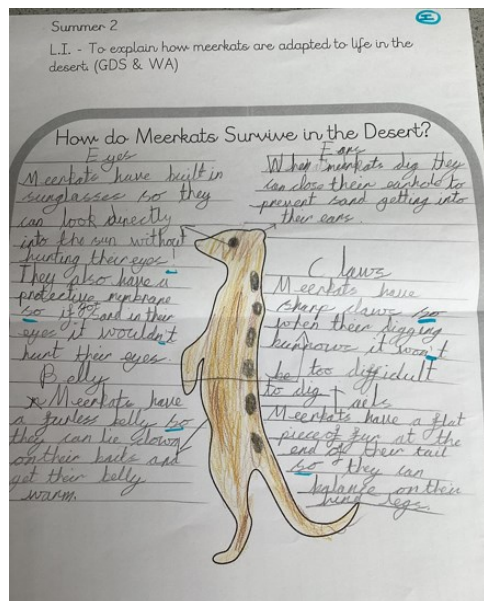 Summer 2
L.I. - To explain how meerkats are adapted to life in the
desert. (GDS & WA)
How do Meerkats Survive in the Desert?
Eyes
Meerkats have built in
sunglasses so they
can look directly
into the sun without
hurting their eyes!
They also have a
protective membrane
so if sand in their
eyes it wouldn't
hurt their eyes.
Belly
Meerkats have
a furless belly so
they can lie down
on their backs and
get their belly
warm.
Ears
When meerkats dig they
can close their earhole to
prevent sand getting into
their ears.
Claws
Meerkats have
sharp claws so
when their digging
burrows it won't
be too difficult
to dig
Tails
Meerkats have a flat
piece of fur at the
end of their tail
so they can
balance on their
hind legs.